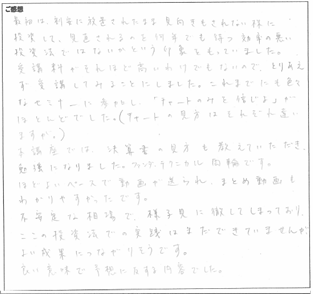 ご感想
最初は、割安に放置されたまま見向きもされない株に
投資して、見直されるのを何年でも待つ効率の悪い
投資法ではないかという印象をもっていました。
受講料がそれほど高いわけでもないので、とりあえ
ず受講してみることにしました。これまでにも色々
なセミナーに参加し「チャートのみを信じる」が
ほとんどでした。(チャートの見方はそれぞれ違い
ますが。)
本講座では、決算書の見方も教えていただき、
勉強になりました。ファンダ、テクニカル両輪です。
ほどよいペースで動画が送られ、まとめ動画も
わかりやすかったです。
不安定な相場で、様子見に徹してしまっており、
ここの投資法での実践はまだできていませんが
よい成果につながりそうです。
良い意味で予想に反する内容でした。